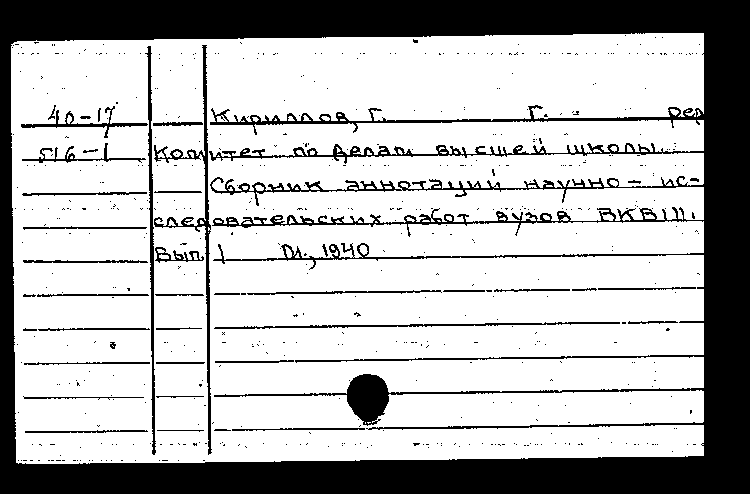 40-17 Кириллов, Г. Г. - ред
516-1 Комитет по делам высшей школы.
Сборник аннотаций научно-ис-
следовательских работ вузов ВКВШ.
Вып. 1 М., 1940